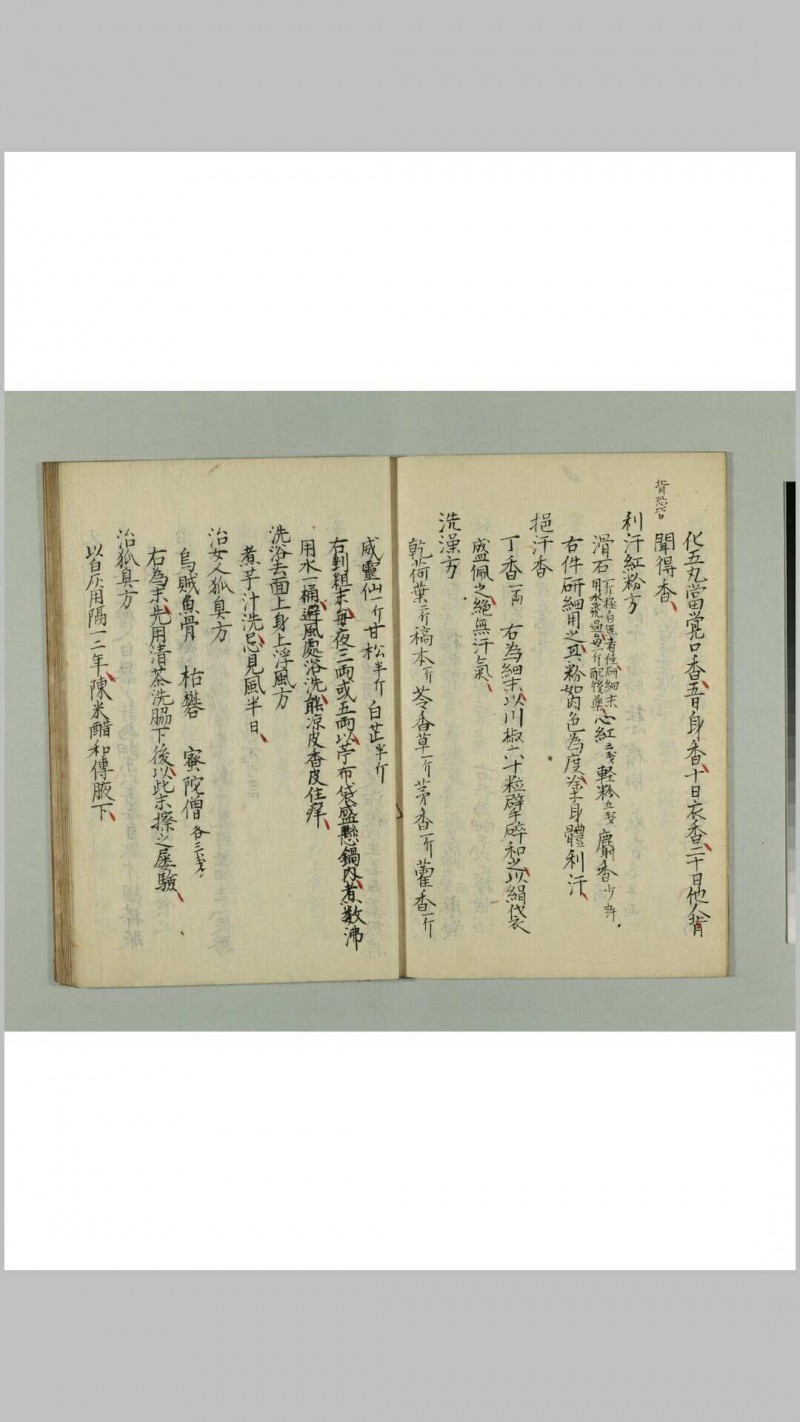 化五丸當覚口香五日身香十日衣香二十日他人背
背恐皆
聞得香
利汗紅粉方
滑石一斤極白無者佳研細末
用水飛過每一斤配後藥心紅三戔輕粉五戔麝香少許
右件研細用之其粉如肉色為度塗身體利汗
挹汗香
丁香一兩 右為細末以川椒六十粒擘碎和之以絹袋
盛佩之絕無汗氣
洗澡方
乾荷葉二斤稿本一斤苓香草一斤茅香一斤藿香一斤
威靈仙一斤甘松半斤白芷半斤
右剉粗末每夜三兩或五兩以苧布袋盛懸鍋內煮数沸
用水一桶避風處浴洗能凉皮香皮住痒
洗浴去面上身上浮風方
煮芋汁洗忌見風半日
治女人狐臭方
烏賊魚骨 枯礬 宻陀僧各三戔
右為末先用清茶洗脇下後以此末擦之屡驗
治狐臭方
以白灰用隔一二年陳米醋和傅腋下